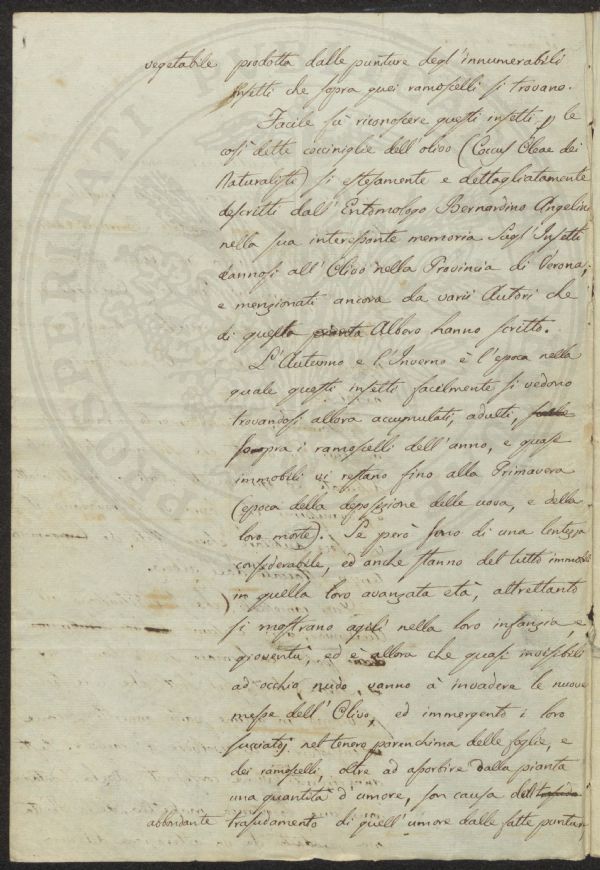 vegetabile prodotta dalle punture degl'innumerabili
Insetti che sopra quei ramoscelli si trovano.
Facile fù riconoscere questi insetti p le
così dette cocciniglie dell'olivo (Coccus Oleae dei
Naturalisti) si estesamente e dettagliatamente
descritti dall'Entomologo Bernardino Angelini
nella sua interessante memoria Sugl'Insetti
dannosi all'Olivo nella Provincia di Verona,
e menzionati ancora da varii Autori che
di questa pianta Albero hanno scritto.
L'Autunno e l'Inverno è l'epoca nella
quale questi insetti facilmente si vedono
trovandosi allora accumulati, adulti,
sopra i ramoscelli dell'anno, e quasi
immobili vi restano fino alla Primavera
(epoca della deposizione delle uova, e della
loro morte). Se però sono di una lentezza
considerabile, ed anche stanno del tutto immobili
in quella loro avanzata età, altrettanto
si mostrano agili nella loro infanzia e
gioventù, ed è allora che quasi invisibili
ad occhio nudo vanno à invadere le nuove
messe dell'Olivo, ed immergento i loro
succiatoj nel tenero parenchima delle foglie, e
dei ramoscelli, oltre ad assorbire dalla pianta
una quantità d'umore, son causa del
abbondante trasudamento di quell'umore dalle fatte punture,